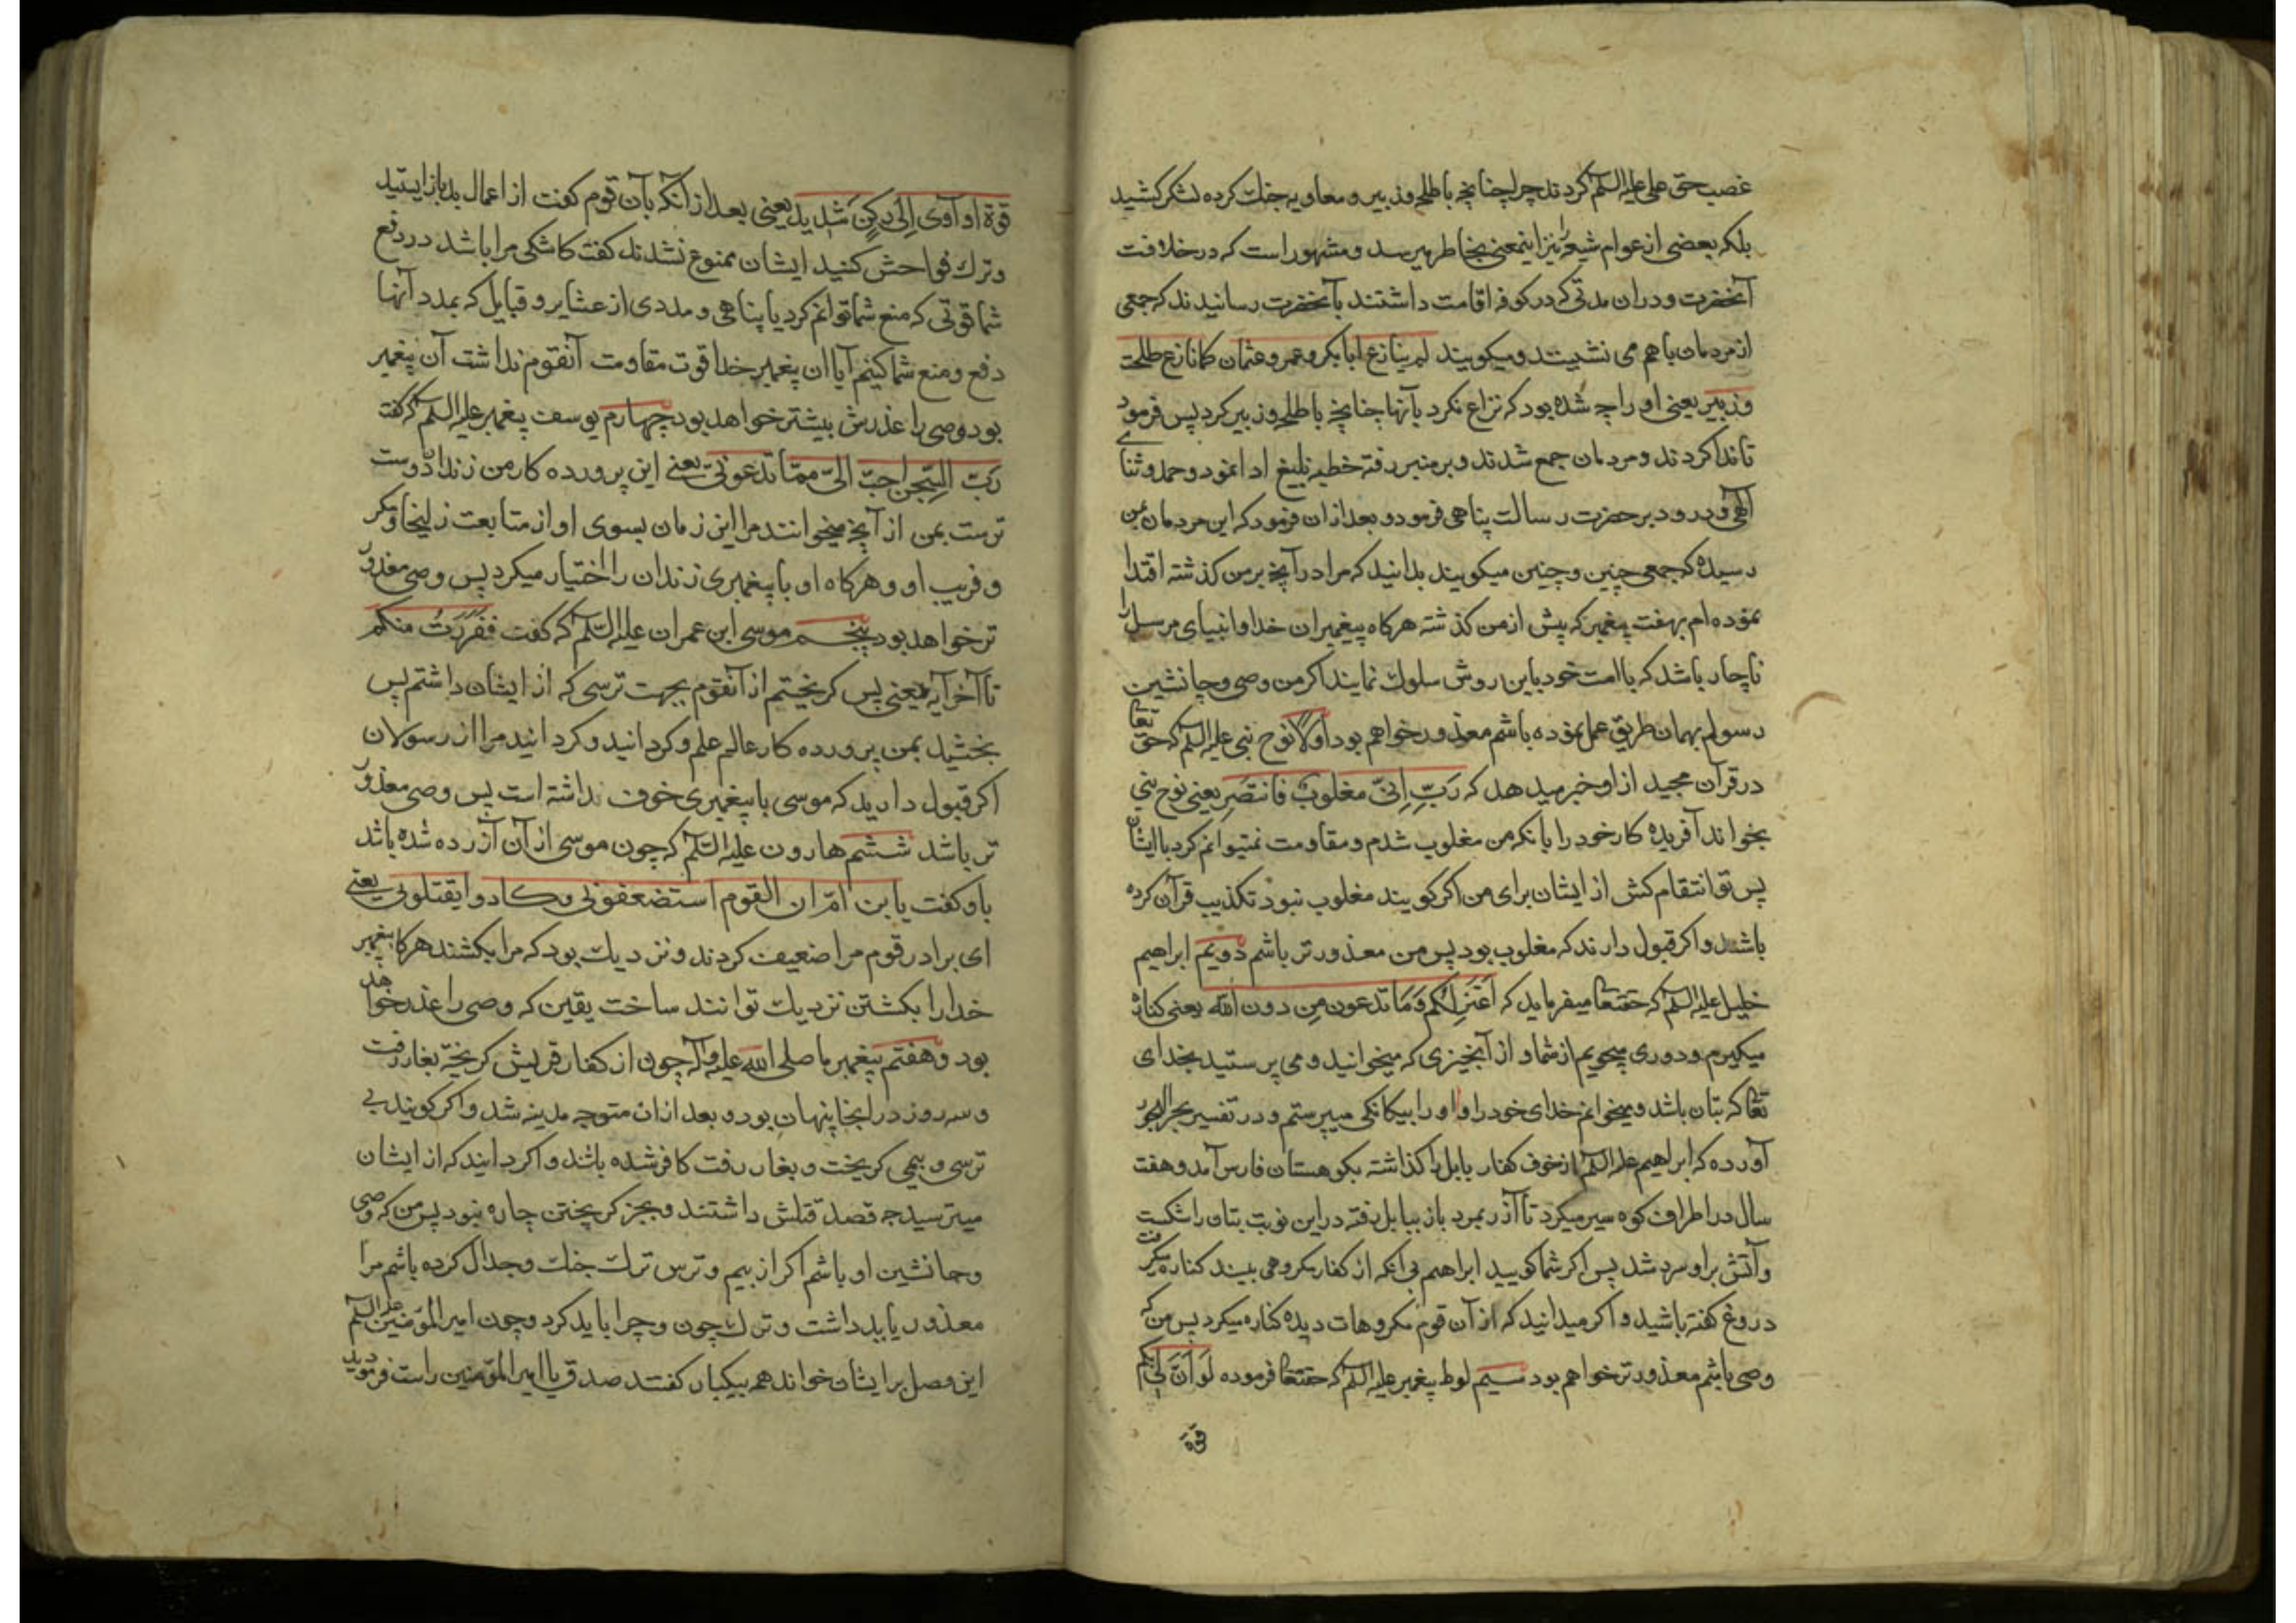 غصب حق علی علیه السلم کردند چرا چنانچه با طلحه و زبیر و معاویه جنک کرده لشکر کشید
بلکه بعضی از عوام شیعه را نیز اینمعنی بخاطر میرسد و مشهور است که در خلافت
آنحضرت و در ان مدتی که در کوفه اقامت داشتند بآنحضرت رسانیدند که جمعی
از مردمان باهم می نشینند و میکویند لم ینازع ابابکر و عمر و عثمان کما نازع طلحة
و زبیر یعنی او را چه شده بود که نزاع نکرد بآنها چنانچه با طلحه و زبیر کرد پس فرمود
تا ندا کردند و مردمان جمع شدند و بر منبر رفته خطبه بلیغ ادا نمود و حمد و ثنای
آلهی و درود بر حضرت رسالت پناهی فرمود و بعد از ان فرمود که این مردمان بمن
رسیده که جمعی چنین و چنین میکویند بدانید که مرا در آنچه بر من کذشته اقتدا
نموده ام بهفت پیغمبر که پیش از من کذشته هرکاه پیغمبران خدا و انبیای مرسل را
ناچار باشد که با امت خود باین روش سلوک نمایند اکر من وصی و جانشین
رسولم بهمان طریق عمل نموده باشم معذور خواهم بود اولا نوح نبی علیه السلم که حق تعا
در قرآن مجید از او خبر میدهد که رَبِّ اِنّی مغلوبٌ فانتصَر یعنی نوح نبی
بخواند آفریده کار خود را بانکه من مغلوب شدم و مقاومت نمتیوانم کرد با ایشان
پس تو انتقام کش از ایشان برای من اکر کویند مغلوب نبود تکذیب قرآن کرده
باشند و اکر قبول دارند که مغلوب بود پس من معذور تر باشم دویم ابراهیم
خلیل علیه السلم که حقتعا میفرماید که اَعْتَزِلُکُم وَمَا تدعون مِن دون الله یعنی کناره
میکیرم و دوری میجویم از شما و از آنچیزی که میخوانید و می پرستید بخدای
تعا که بتان باشد و میخوانم خدای خود را و او را بیکانکی میپرستم و در تفسیر بحر
آورده که ابراهیم علیه السلم از خوف کفار بابل را کذاشته بکوهستان فارس آمد و هفت
سال در اطراف کوه سیر میکرد تا آذر بمرد باز ببابل رفته در این نوبت بتان را شکست
و آتش بر او سرد شد پس اکر شما کویید ابراهیم بی انکه از کفار مکروهی بیند کناره کرفت
دروغ کفته باشید و اکر میدانید که از آن قوم مکروهات دیده کناره میکرد پس من که
وصی باشم معذور تر خواهم بود سیم لوط پیغمبر علیه السلم که حقتعا فرموده لَو اَنَّ لی بکم
قوة
قوة او آوی اِلیٰ رکنٍ شدید یعنی بعد از آنکه بآن قوم کفت از اعمال بد باز ایستید
و ترک فواحش کنید ایشان ممنوع نشدند کفت کاشکی مرا باشد در دفع
شما قوتی که منع شما توانم کرد یا پناهی و مددی از عشایر و قبایل که بمدد آنها
دفع و منع شما کنیم آیا ان پیغمبر خدا قوت مقاومت آنقوم نداشت آن پیغمبر
بود وصی را عذرش بیشتر خواهد بود چهارم یوسف پیغمبر علیه السلم که کفت
ربّ السِّجن احبّ الیّ ممّا تدعونی یعنی این پرورده کار من زندان دوست
ترست بمن از آنچه میخوانند مرا این زمان بسوی او از متابعت زلیخا و مکر
و فریب او و هرکاه او با پیغمبری زندان را اختیار میکرد پس وصی معذور
تر خواهد بود پنجم موسی ابن عمران علیه السلم که کفت ففَرَرتُ منکم
تا آخر آیه یعنی پس کریختم از آنقوم بجهت ترسی که از ایشان داشتم پس
بخشید بمن پرورده کار عالم علم و کردانید و کردانید مرا از رسولان
اکر قبول دارید که موسی با پیغمبری خوف نداشته است پس وصی معذور
تر باشد ششم هارون علیه السلم که چون موسی از آن آزرده شده باشد
باو کفت یا بن امّ ان القوم استضعفونی و کادوا یقتلونی یعنی
ای برادر قوم مرا ضعیف کردند و نزدیک بود که مرا بکشند هرکاه پیغمبر
خدا را بکشتن نزدیک توانند ساخت یقین که وصی را عذر خواهد
بود و هفتم پیغمبر ما صلی الله علیه و آله چون از کفار قریش کریخته بغار رفت
و سه روز در انجا پنهان بود و بعد از ان متوجه مدینه شد و اکر کویند بی
ترسی و بیمی کریخت و بغار رفت کافر شده باشد و اکر دانید که از ایشان
میترسید چه قصد قتلش داشتند و بجز کریختن چاره نبود پس من که وصی
و جانشین او باشم اکر از بیم و ترس ترک جنک و جدال کرده باشم مرا
معذور باید داشت و ترک چون و چرا باید کرد و چون امیر المؤمنین علیه السلم
این فصل بر ایشان خواند همه بیکبار کفتند صدق یا امیر المؤمنین راست فرمودید